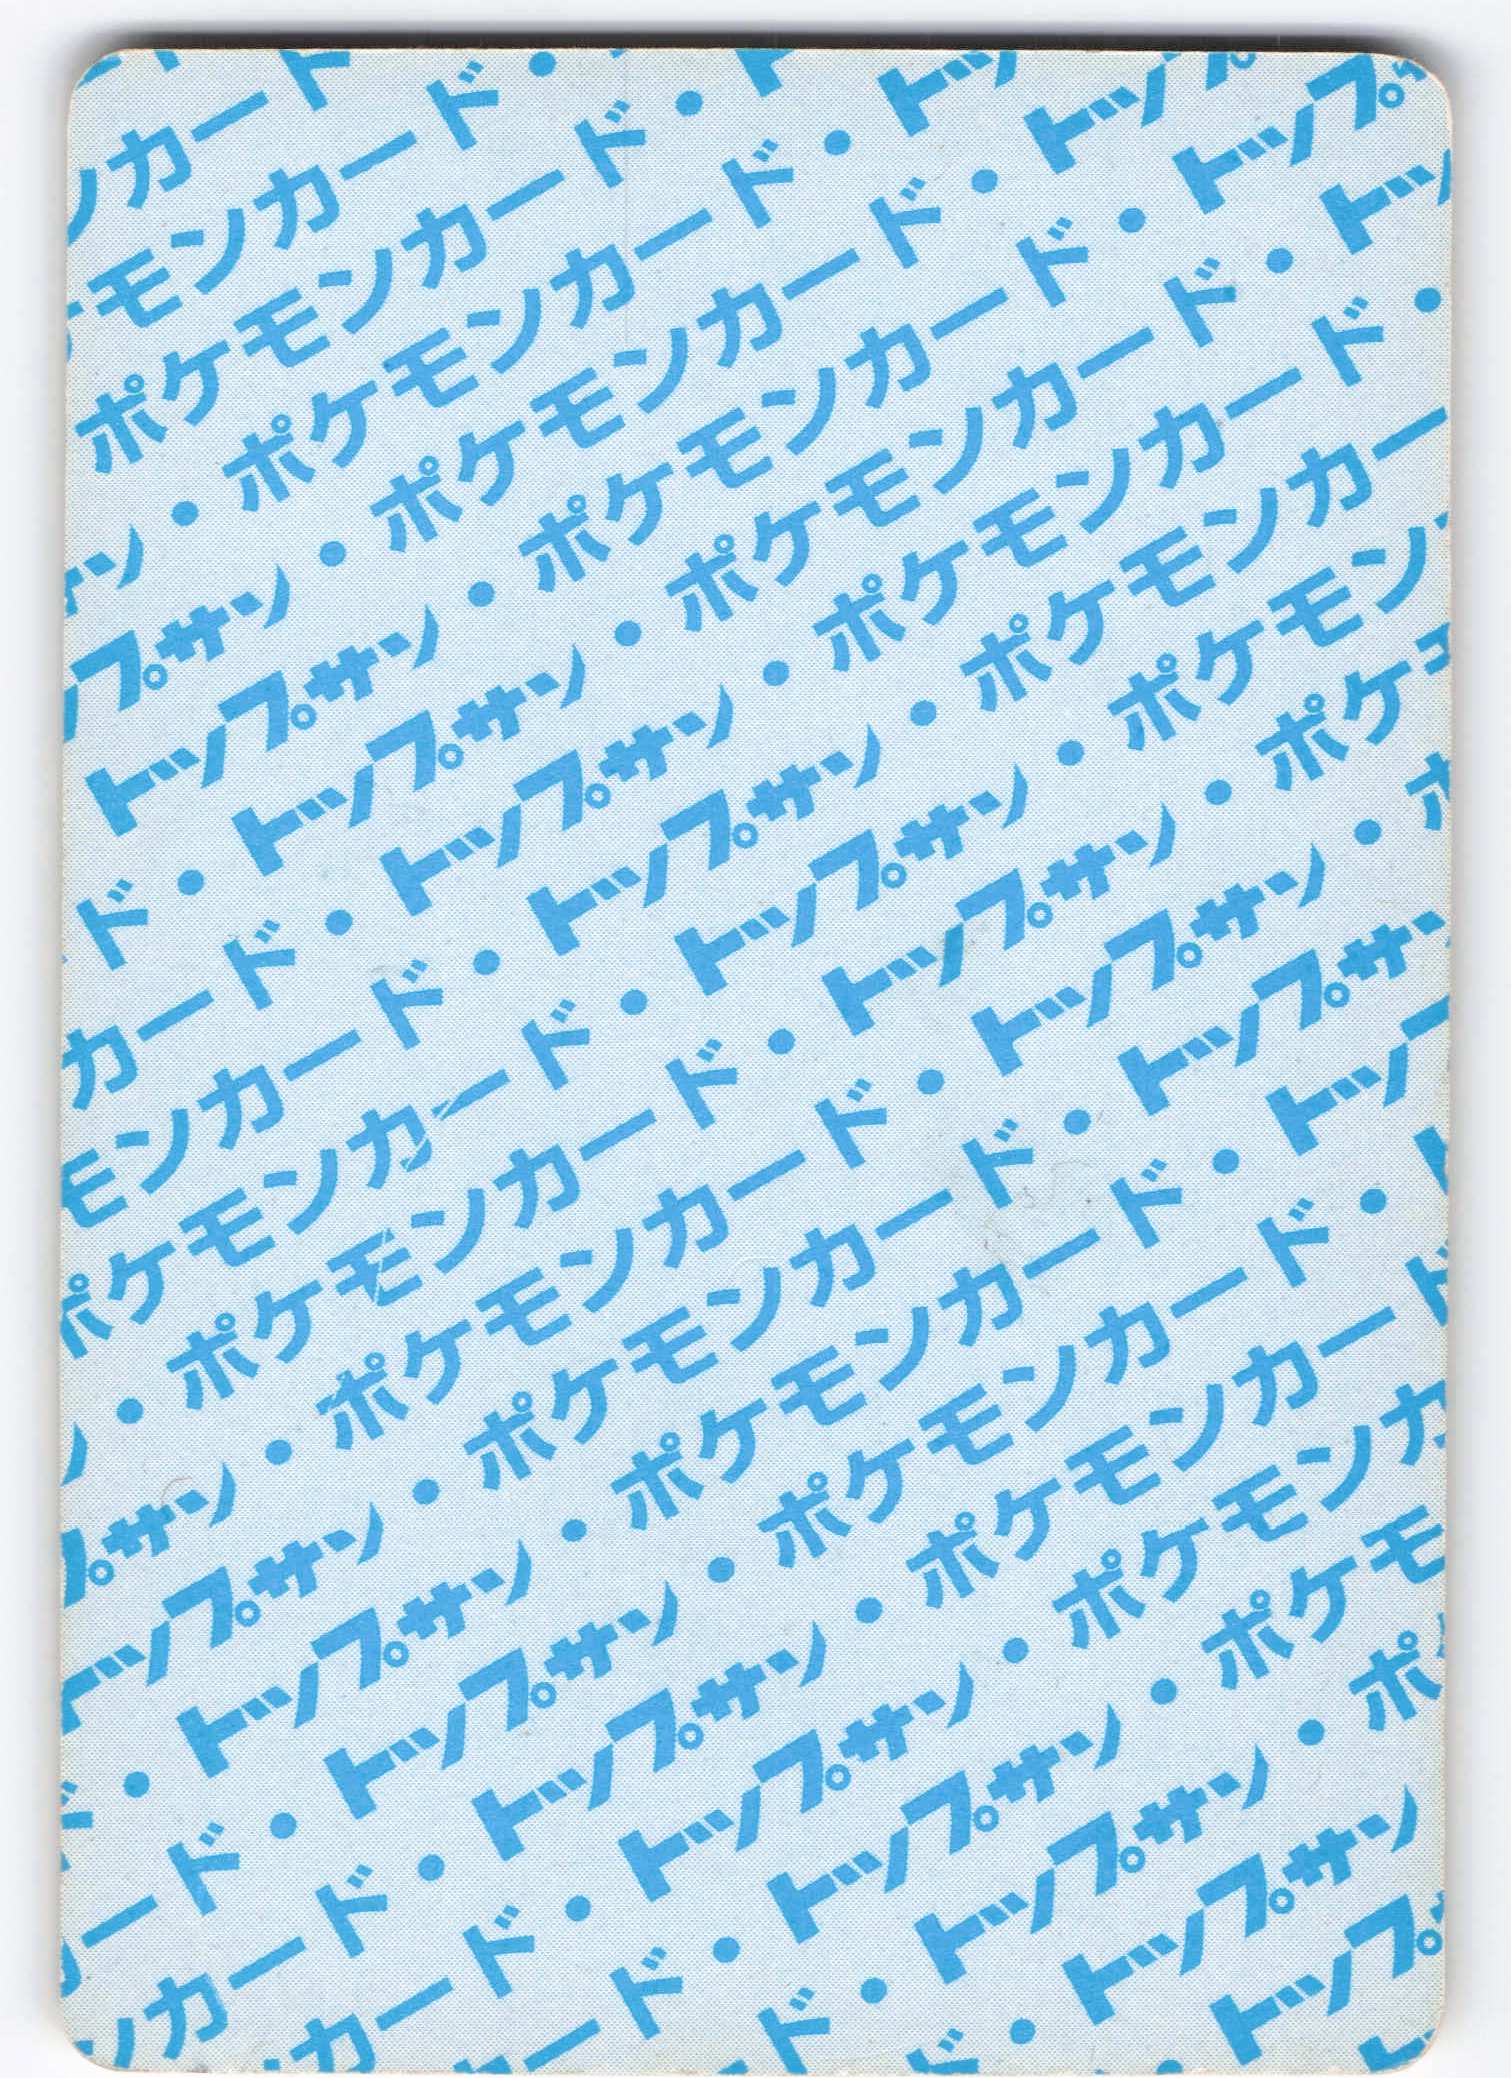 ンカード
モンカード・
ポケモンカード・ト
ン・ポケモンカード・トッ
プサン・ポケモンカード・トップ
トップサン・ポケモンカード・トップ
ド・トップサン・ポケモンカード・トッ
カード・トップサン・ポケモンカード・
モンカード・トップサン・ポケモンカー
ポケモンカード・トップサン・ポケモン
・ポケモンカード・トップサン・ポケ
プサン・ポケモンカード・トップサン・ポ
トップサン・ポケモンカード・トップサ
・トップサン・ポケモンカード・トッ
ード・トップサン・ポケモンカード・
ンカード・トップサン・ポケモンカード
カード・トップサン・ポケモンカ
ード・トップサン・ポケモ
ド・トップサン・ポ
ド・トップサン
トップ